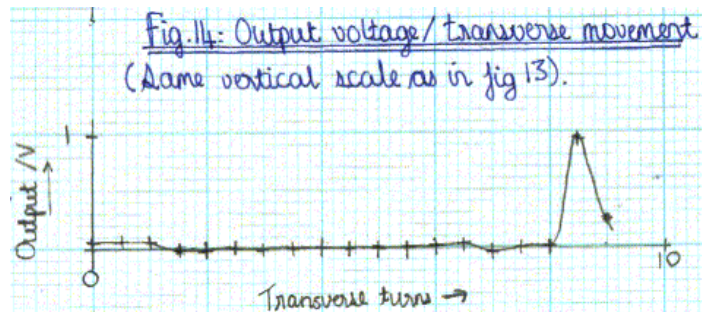 Fig.14: Output voltage/transverse movement
(Same vertical scale as in fig 13).
1
Output /V →
0
10
Transverse turns →